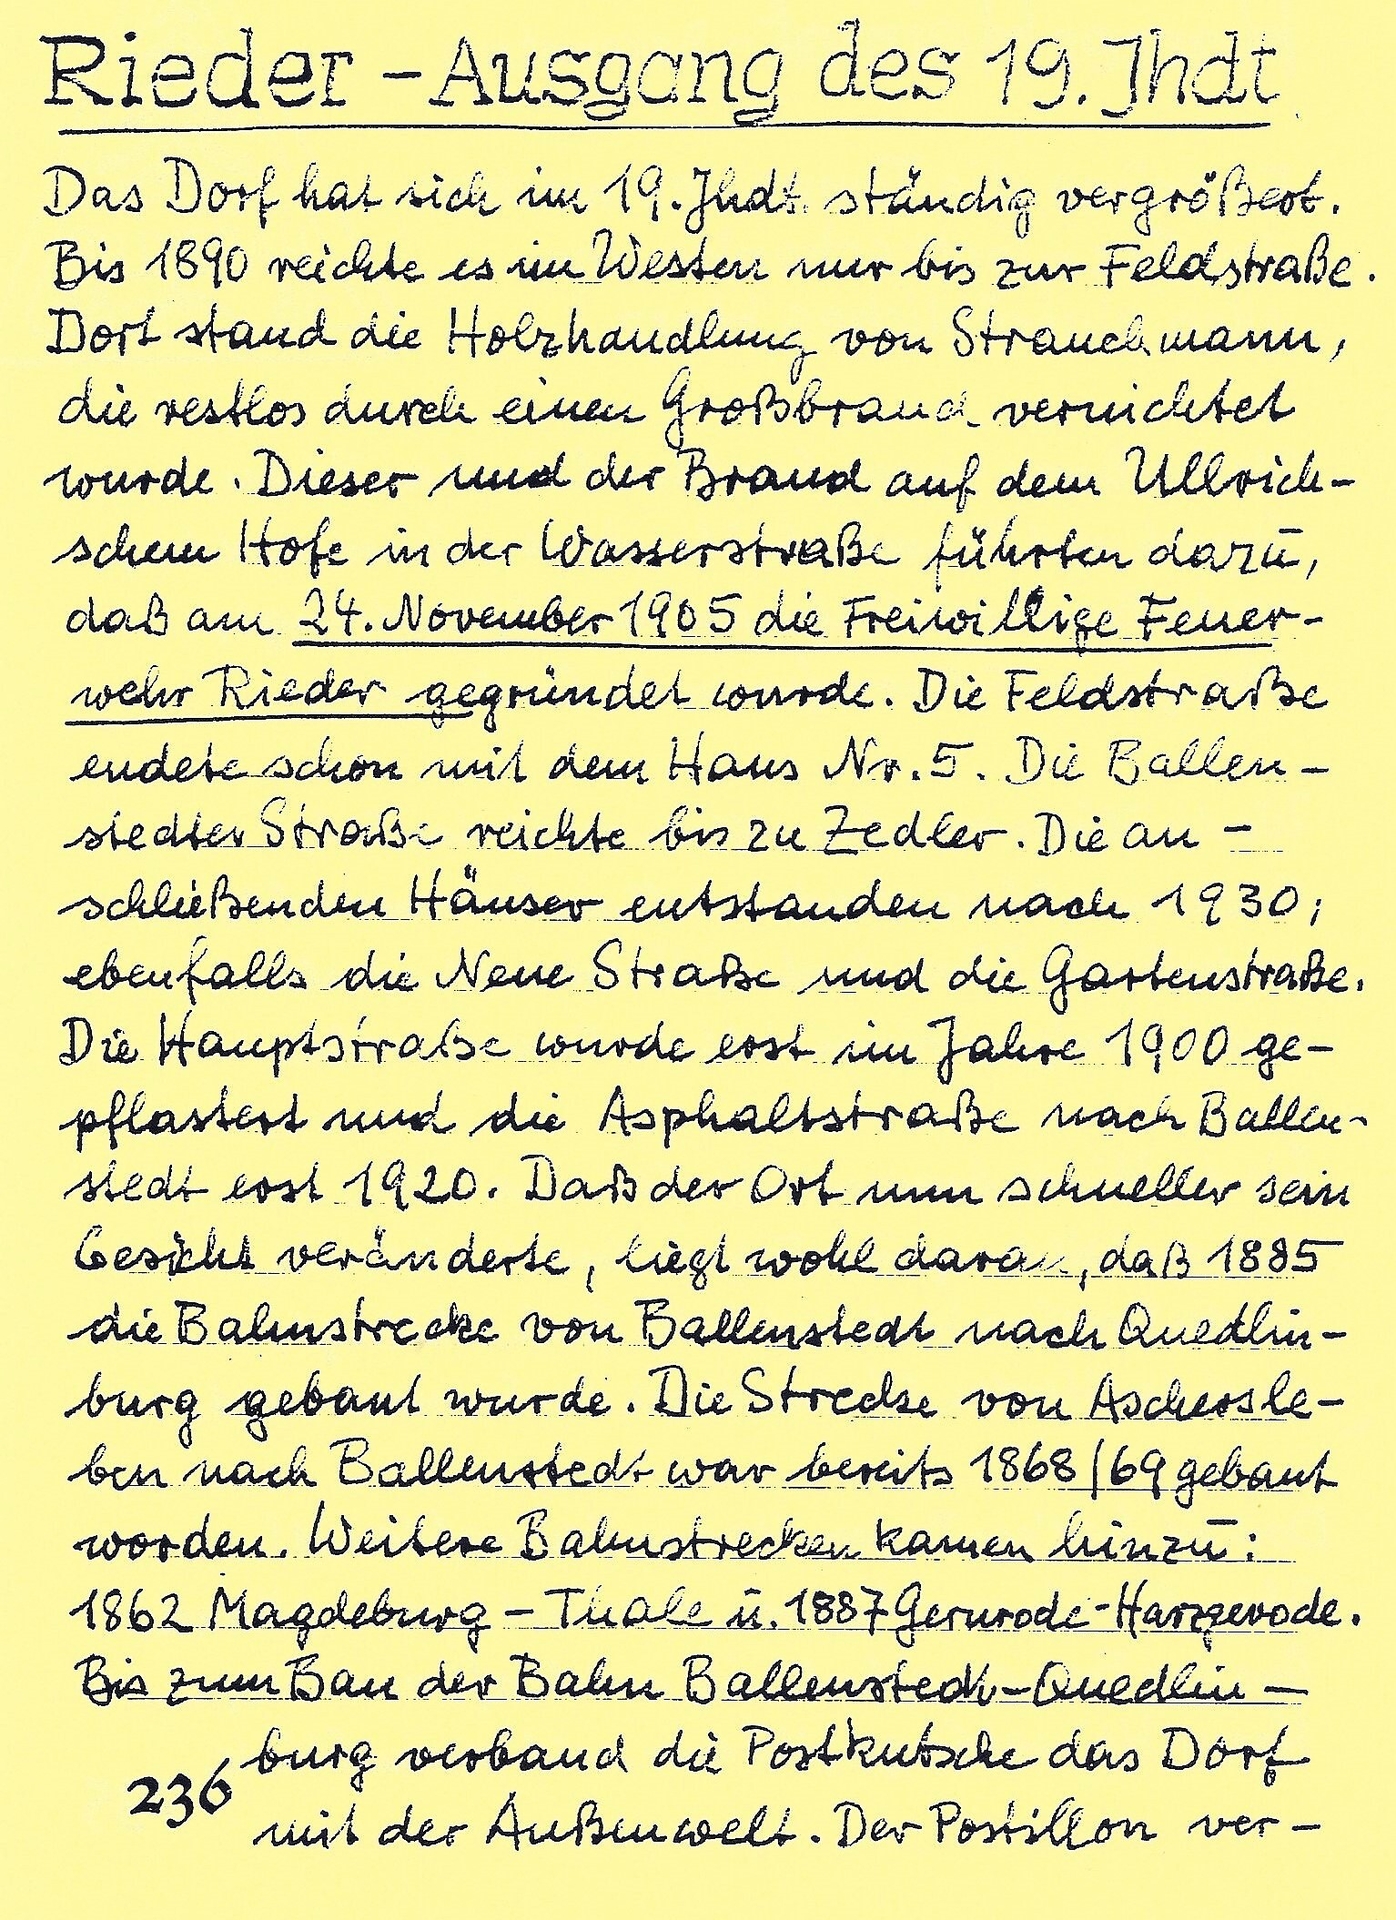 Rieder - Ausgang des 19. Jhdt
Das Dorf hat sich im 19. Jhdt. ständig vergrößert.
Bis 1890 reichte es im Westen nur bis zur Feldstraße.
Dort stand die Holzhandlung von Strauchmann,
die restlos durch einen Großbrand vernichtet
wurde. Dieser und der Brand auf dem Ullrich-
schem Hofe in der Wasserstraße führten dazu,
daß am 24. November 1905 die Freiwillige Feuer-
wehr Rieder gegründet wurde. Die Feldstraße
endete schon mit dem Haus Nr. 5. Die Ballen-
stedter Straße reichte bis zu Zedler. Die an-
schließenden Häuser entstanden nach 1930;
ebenfalls die Neue Straße und die Gartenstraße.
Die Hauptstraße wurde erst im Jahre 1900 ge-
pflastert und die Asphaltstraße nach Ballen-
stedt erst 1920. Daß der Ort nun schneller sein
Gesicht veränderte, liegt wohl daran, daß 1885
die Bahnstrecke von Ballenstedt nach Quedlin-
burg gebaut wurde. Die Strecke von Aschersle-
ben nach Ballenstedt war bereits 1868/69 gebaut
worden. Weitere Bahnstrecken kamen hinzu:
1862 Magdeburg - Thale u. 1887 Gernrode-Harzgerode.
Bis zum Bau der Bahn Ballenstedt-Quedlin-
burg verband die Postkutsche das Dorf
236
mit der Außenwelt. Der Postillon ver-